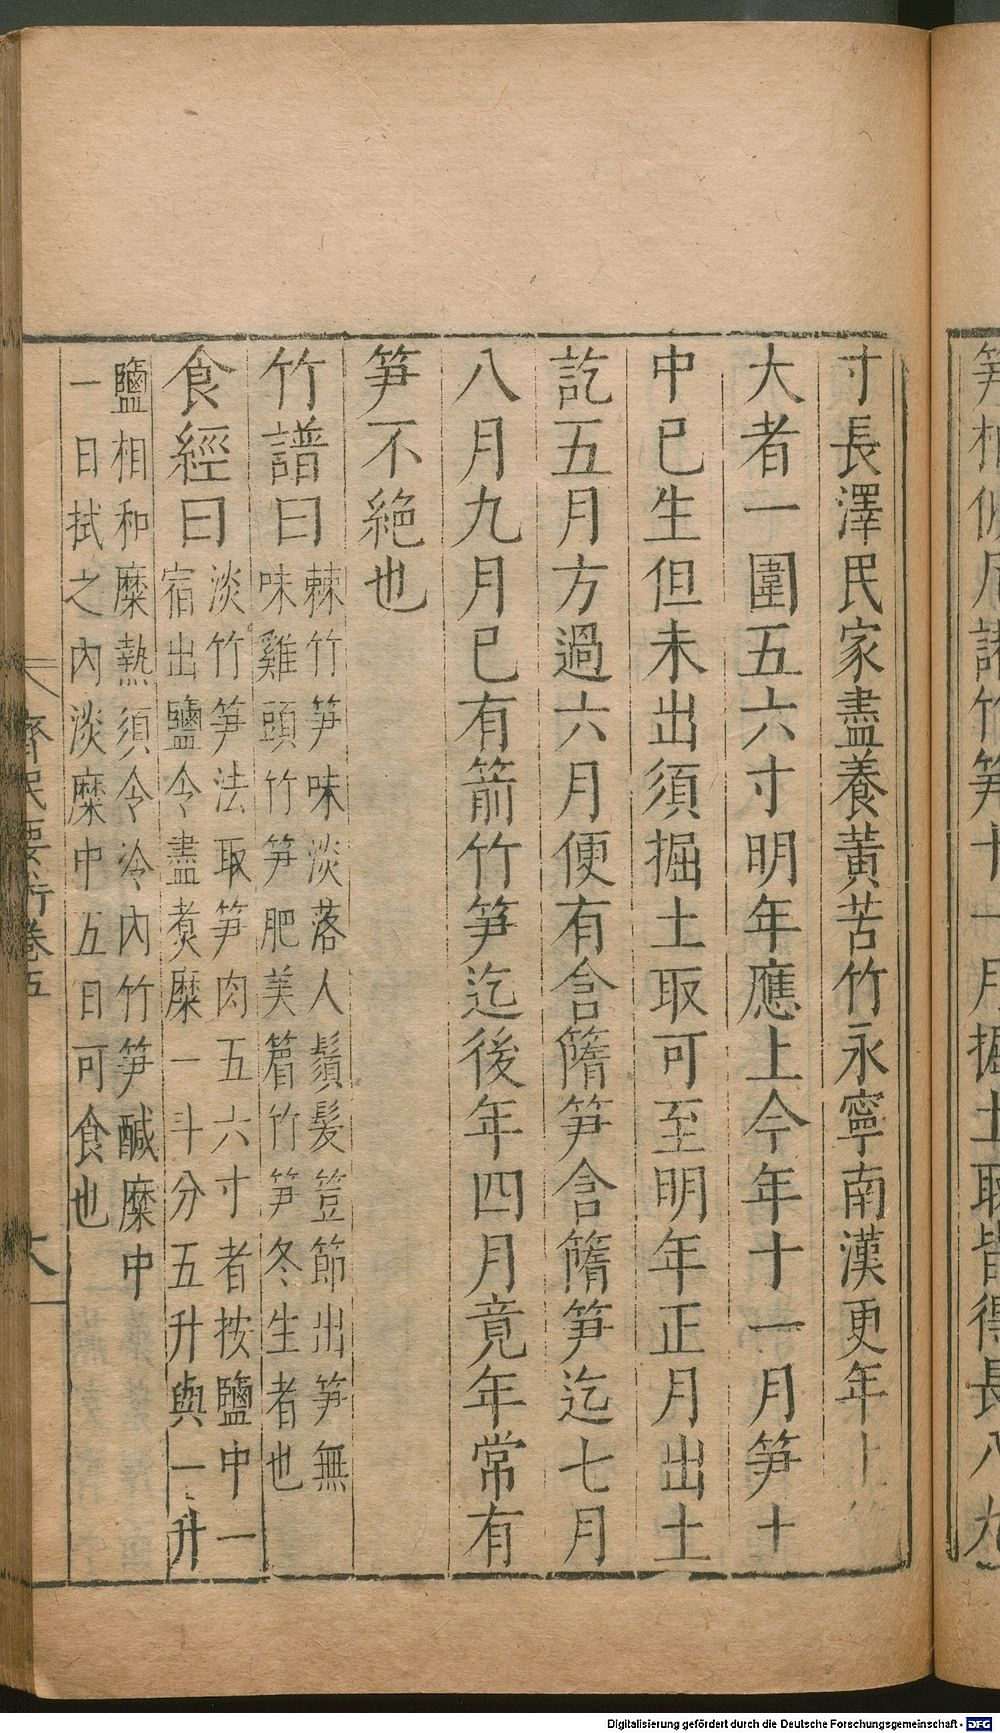 笋十一月掘土取皆得長八九
寸長澤民家盡養黃苦竹永寧南漢更年上
大者一圍五六寸明年應上今年十一月笋十
中已生但未出須掘土取可至明年正月出土
訖五月方過六月便有含𥳍笋含𥳍笋迄七月
八月九月已有箭竹笋迄後年四月竟年常有
笋不絶也
竹譜曰棘竹笋味淡落人鬚髮䇺節出笋無
味雞頭竹笋肥美䈽竹笋冬生者也
食經曰淡竹笋法取笋肉五六寸者按鹽中一
宿出鹽令盡煑糜一斗分五升與一升
鹽相和糜熱須令冷內竹笋醎糜中
一日拭之內淡糜中五日可食也
齊民要術卷五
Digitalisierung gefördert durch die Deutsche Forschungsgemeinschaft - DFG